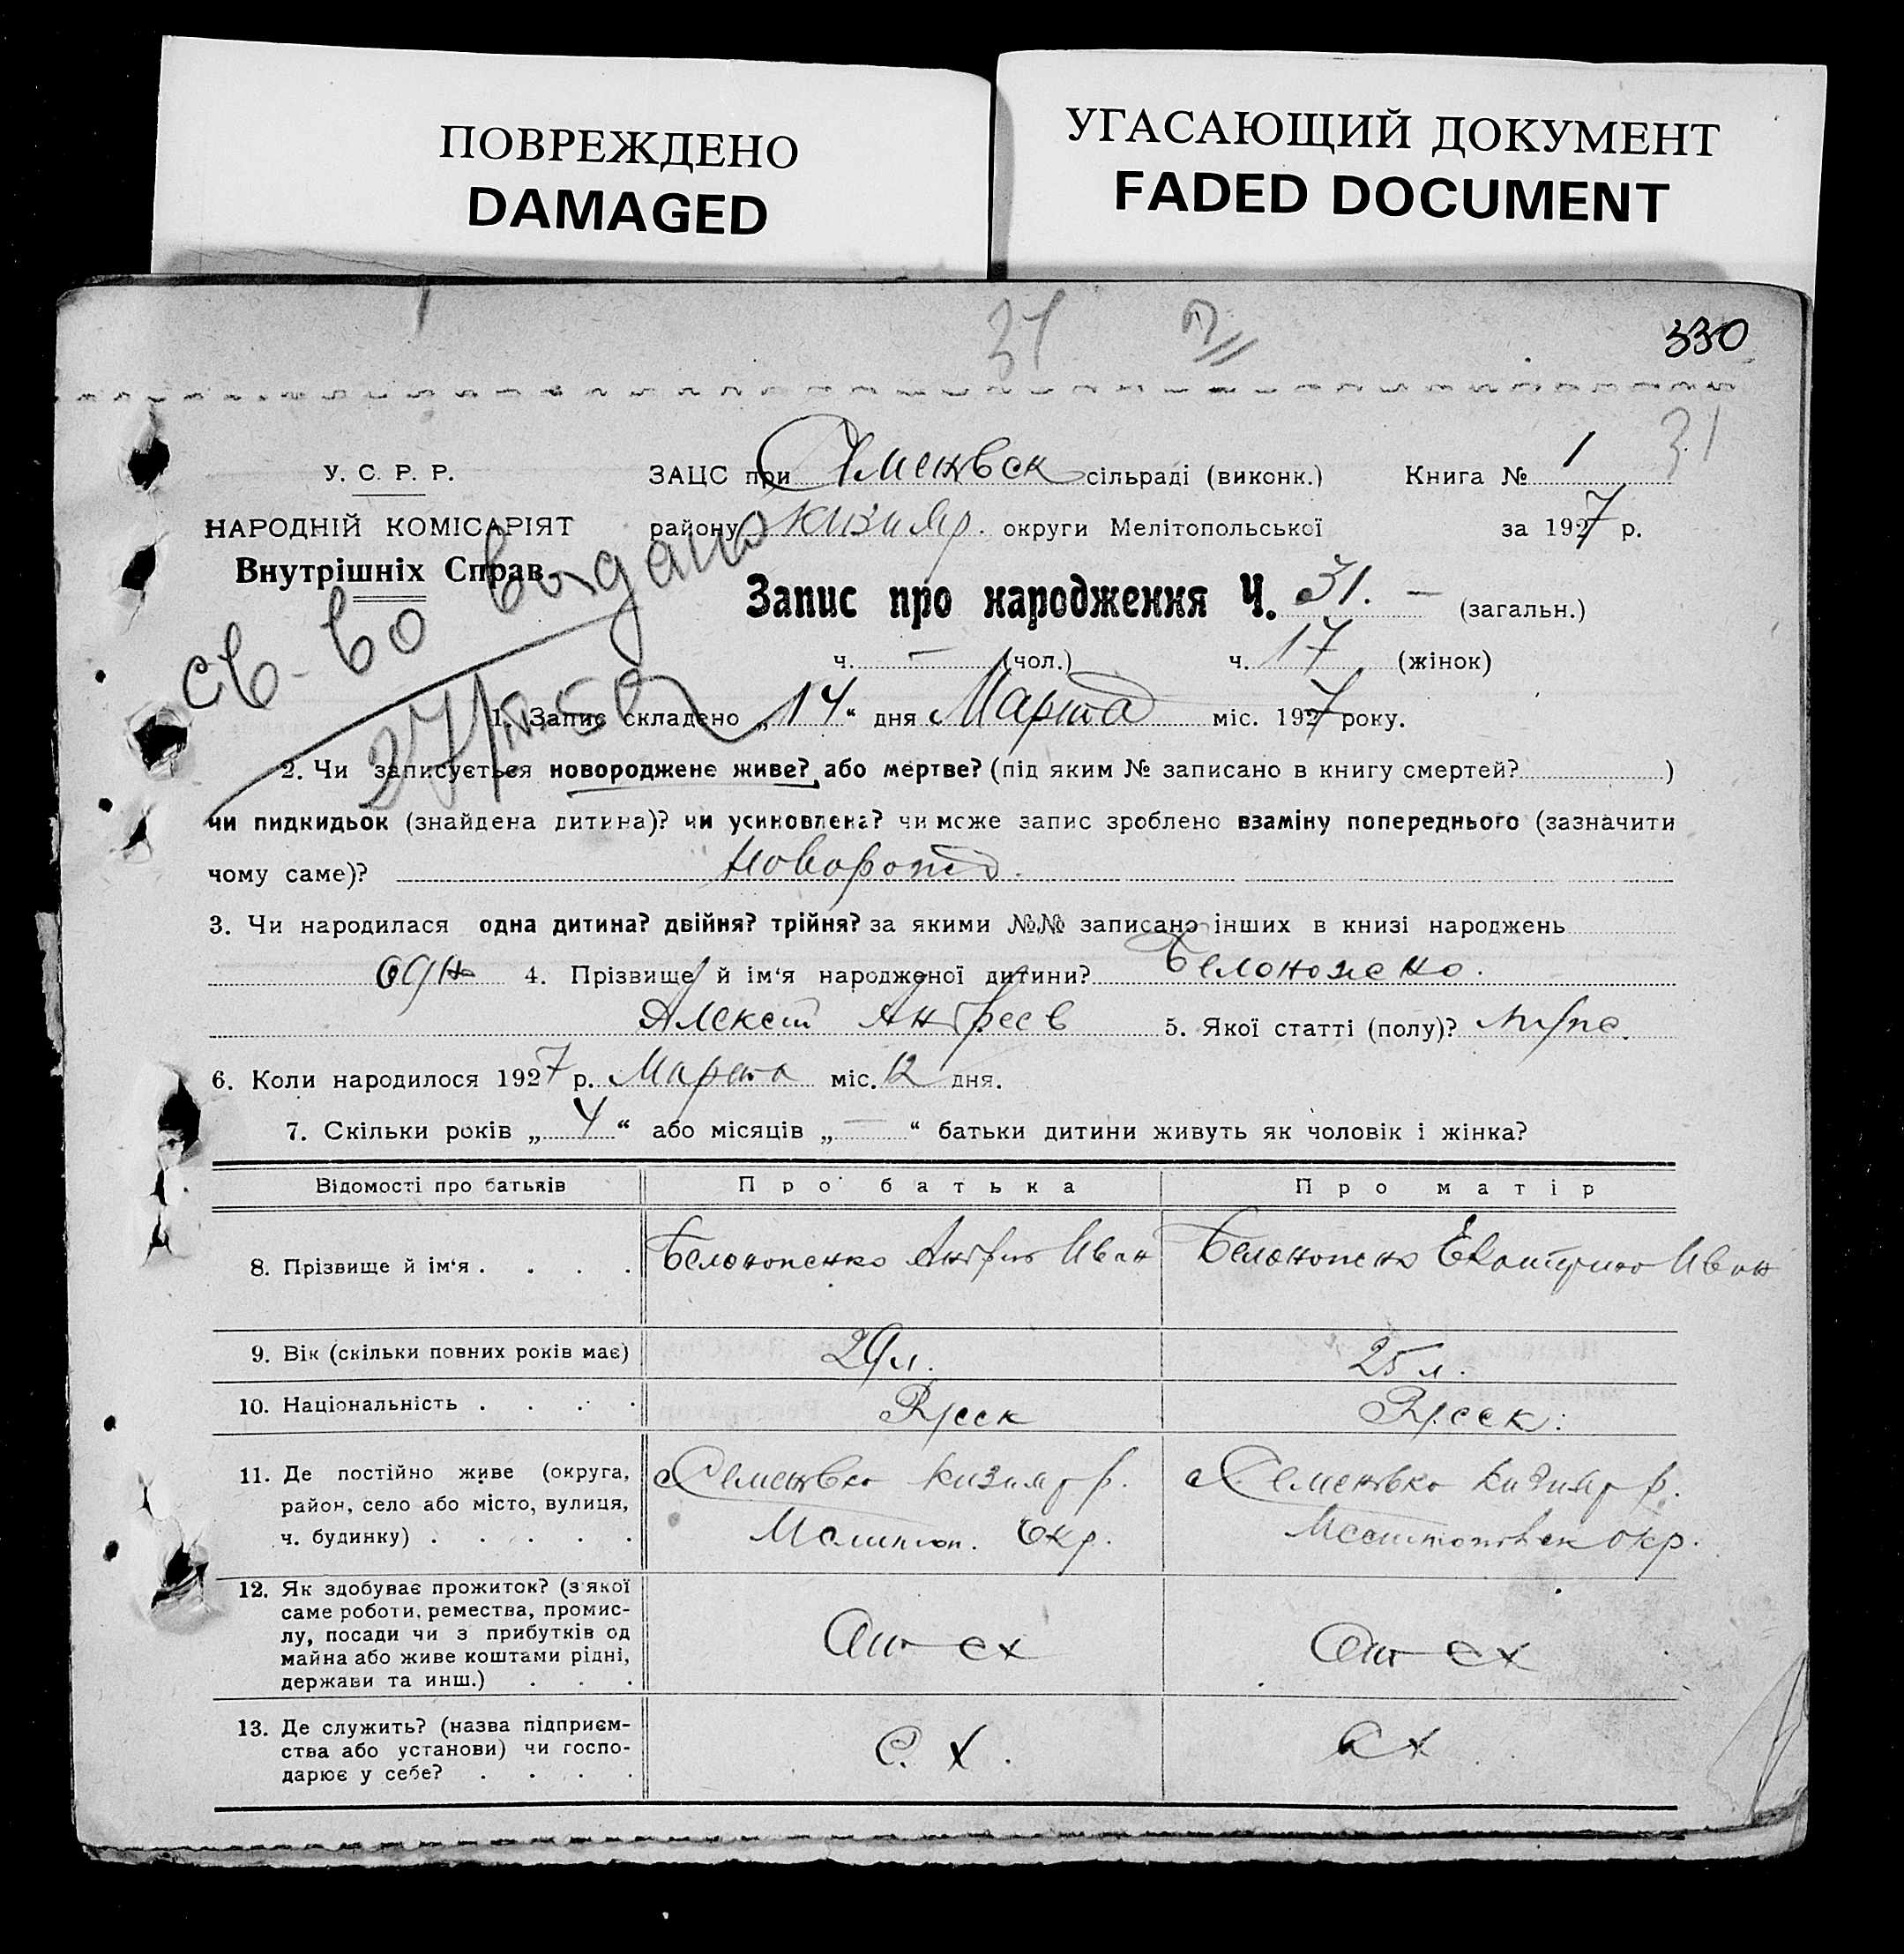 ПОВРЕЖДЕНО
DAMAGED
УГАСАЮЩИЙ ДОКУМЕНТ
FADED DOCUMENT
31
330
31
У. С. Р. Р.
НАРОДНІЙ КОМІСАРІЯТ
Внутрішніх Справ
ЗАЦС при Семенвск сільраді (виконк.) Книга № 1
району Кизияр. округи Мелітопольської за 1927 р.
св-во выдано
27/
Запис про народження Ч. 31. — (загальн.)
ч. — (чол.) ч. 17 (жінок)
1. Запис складено „14“ дня Марта міс. 1927 року.
2. Чи записується новороджене живе? або мертве? (під яким № записано в книгу смертей? )
чи пидкидьок (знайдена дитина)? чи усиновлена? чи може запис зроблено взаміну попереднього (зазначити
чому саме)? Неворожд.
3. Чи народилася одна дитина? двійня? трійня? за якими №№ записано інших в книзі народжень
одн 4. Прізвище й ім‘я народженої дитини? Белоножено.
Алексей Андреев 5. Якої статті (полу)?
6. Коли народилося 1927 р. Марта міс. 12 дня.
7. Скільки років „4“ або місяців „—“ батьки дитини живуть як чоловік і жінка?
Відомості про батьків
Про батька
Про матір
8. Прізвище й ім‘я . . . .
Белоноженко Андрию Иван
Белоножено Екатерино Иван
9. Вік (скільки повних років має)
29 л.
25 л.
10. Національність . . . .
Русск
Русск.
11. Де постійно живе (округа,
район, село або місто, вулиця,
ч. будинку) . . . . .
с Семенвко Кизияр р.
Мелитоп. Окр.
с Семенвко Кизияр р.
Мелитопольск окр.
12. Як здобуває прожиток? (з якої
саме роботи, ремества, промис-
лу, посади чи з прибутків од
майна або живе коштами рідні,
держави та инш.) . . .
сх
сх
13. Де служить? (назва підприєм-
ства або установи) чи госпо-
дарює у себе? . . . .
С. Х.
СХ